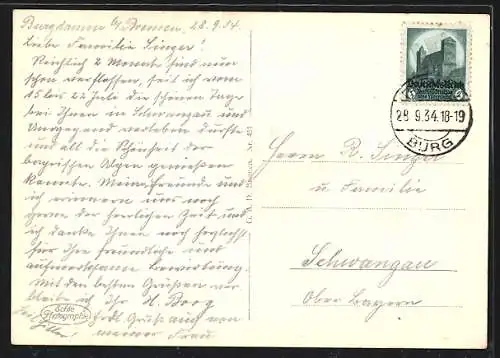 Burgdamm b/Bremen. 28.9.34
Liebe Familie Singer!
Reichlich 2 Monate sind nun
schon verflossen, seit ich vom
15 bis 22 Juli die schönen Tage
bei Ihnen in Schwangau und
Umgegend verleben durfte
und all die Schönheit der
bayrischen Alpen genießen
konnte. Meine Freunde und
ich erinnern uns noch
gerne der herrlichen Zeit und
ich danke Ihnen noch herzlichst
für Ihre freundliche und
aufmerksame Bewirtung.
Mit den besten Grüßen ver-
bleibe ich Ihr H. Borg
Heil Hitler! Herdl. Gruß auch von
meiner Frau
Echte
Photographie
28.9.34.18-19
BURG
Herrn R. Singer
u. Familie
Schwangau
Ober Bayern